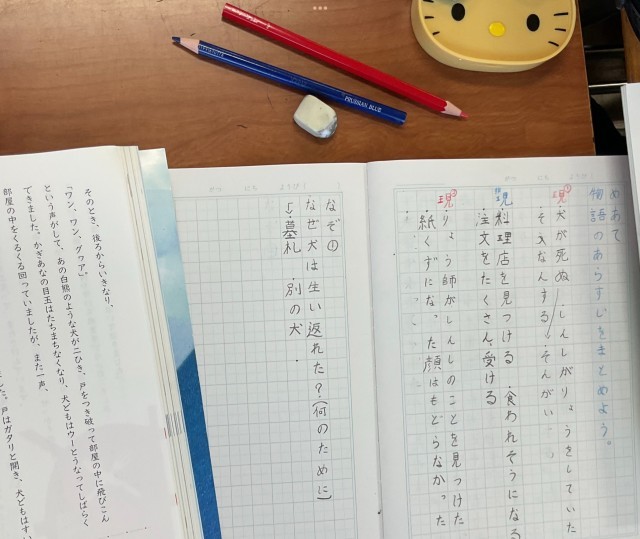 めあて
物語のあらすじをまとめよう。
現① 犬が死ぬ しんしがりょうをしていた
そうなんする→そんがい
料理店を見つける 食われそうになる
注文をたくさん受ける
現② りょう師がしんしのことを見つけた
紙くずになった顔はもどらなかった
なぞ①
なぜ犬は生き返れた?(何のために)
墓札 別の犬
そのとき、後ろからいきなり、
「ワン、ワン、グヮア」
という声がして、あの白熊のような犬が二ひき、戸をつき破って部屋の中に飛びこん
できました。かぎあなの目玉はたちまちなくなり、犬どもはウーとうなってしばらく
部屋の中をくるくる回っていましたが、また一声、
戸はガタリと開き、犬どもはすい
PRUSSIAN BLUE